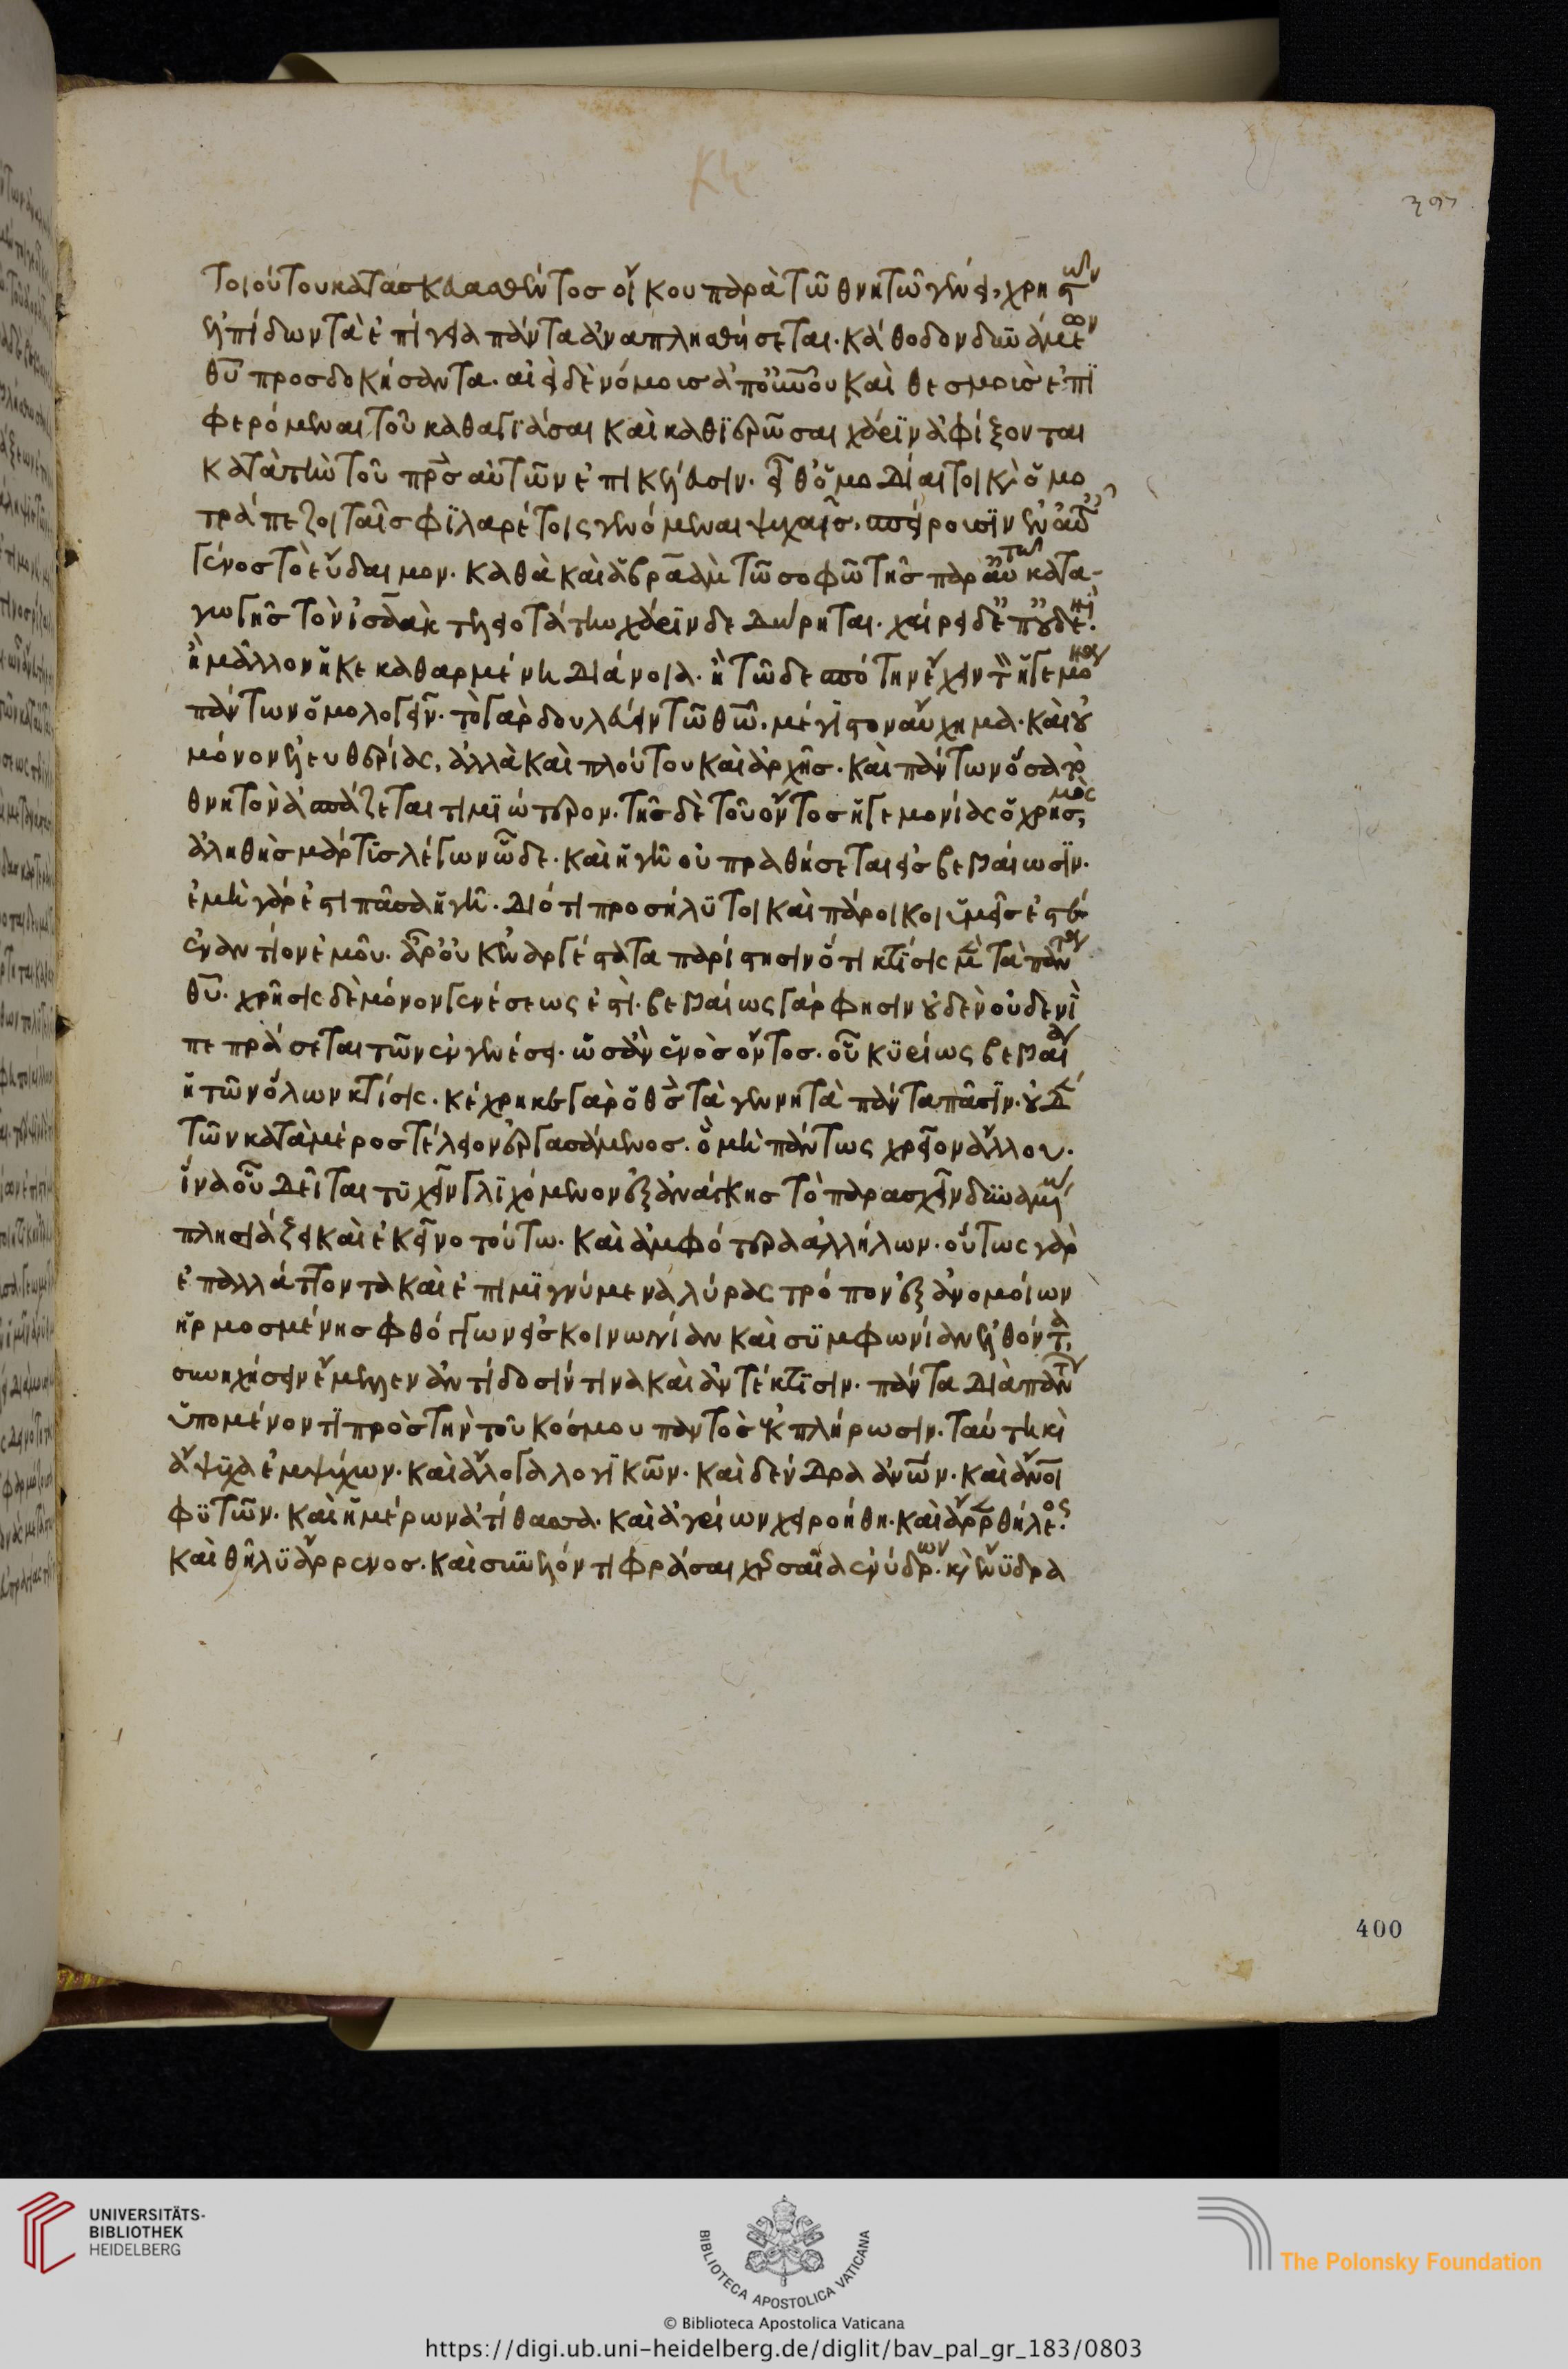 τοιούτου κατασκευασθέντος οἴκου παρὰ τῶ θνητῶ γένει, χρηστῶν
ἐλπίδων τὰ ἐπίγεια πάντα ἀναπλησθήσεται. κάθοδον δυνάμεων
θῦ προσδοκήσαντα. αἱ δὲ νόμους ἀπ' οὐνοῦ καὶ θεσμοὺς ἐπι
φερόμεναι τοῦ καθαγιάσαι καὶ καθιερῶσαι χάριν ἀφίξονται
κατὰ τὴν τοῦ πρς αὐτῶν ἐπικέλευσιν. εἶθ' ὁμοδίαιτοι κ̀ ὁμο
τράπεζοι ταῖς φιλαρέτοις γενόμεναι ψυχαῖς, σπείρουσιν ἐν αὐτ
γένος τὸ εὔδαιμον. καθὰ καὶ ἀβραὰμ τῶ σοφῶ τῆς παρ' αὐτῶ κατα-
γωγῆς τὸν ἰσαὰκ τελειοτάτην χάριν δεδώρηται. χαίρει δ' ἐπ' οὐδενὶ.
ἢ μᾶλλον ἡ κεκαθαρμένη διάνοια. ἢ τῶ δεσπότην ἔχειν τ ἡγεμόνα
πάντων ὁμολογεῖν. τὸ γὰρ δουλεύειν τῶ θῶ. μέγιστον αὔχημα. καὶ οὐ
μόνον ἐλευθερίας, ἀλλὰ καὶ πλούτου καὶ ἀρχῆς. καὶ πάντων ὅσα τὸ
θνητὸν ἀσπάζεται τιμιώτερον. τῆς δὲ τοῦ ὄντος ἡγεμονίας ὁ χρησμὸς,
ἀληθὴς μάρτυς λέγων ὧδε. καὶ ἡ γῆ οὐ πραθήσεται εἰς βεβαίωσιν.
ἐμὴ γάρ ἐστι πᾶσα ἡ γῆ. διότι προσήλυτοι καὶ πάροικοι ὑμεῖς ἐστὲ
ἐναντίον ἐμοῦ. ἆρ' οὐκ ἐναργέστατα παρίστησιν ὅτι κτίσις μὲν τὰ πάντα
θῦ. χρῆσις δὲ μόνον γενέσεως ἐστὶ. βεβαίως γάρ φησιν οὐδὲν οὐδενὶ
πεπράσεται τῶν ἐν γενέσει. ὡσὰν ἑνὸς ὄντος. οὗ κυρίως βεβαία
ἡ τῶν ὅλων κτίσις. κέχρηκε γὰρ ὁ θς τὰ γεννητὰ πάντα πᾶσιν. οὐδὲν
τῶν κατὰ μέρος τέλειον ἐργασάμενος. ὃ μὴ πάντως χρεῖον ἄλλου.
ἵνα οὗ δεῖται τυχεῖν γλιχόμενον ἐξ ἀνάγκης τὸ παρασχεῖν δυναμένω
πλησιάζει καὶ ἐκεῖνο τούτω. καὶ ἀμφότερα ἀλλήλων. οὕτως γὰρ
ἐπαλλάττοντα καὶ ἐπιμιγνύμενα λύρας τρόπον ἐξ ἀνομοίων
ἡρμοσμένης φθόγγων εἰς κοινωνίαν καὶ συμφωνίαν ἐλθόντα,
συνηχήσειν ἔμελλεν ἀντίδοσίν τινα καὶ ἀντέκτισιν. πάντα διὰ πάντων
ὑπομένοντι πρὸς τὴν τοῦ κόσμου παντὸς ἐκπλήρωσιν. ταύτη κ̀
ἄψυχα ἐμψύχων. καὶ ἄλογα λογικῶν. καὶ δένδρα ἀνῶν. καὶ ἄνοι
φυτῶν. καὶ ἡμέρων ἀτίθασσα. καὶ ἀγρίων χειροήθη. καὶ ἄρρεν θήλεος.
καὶ θῆλυ ἄρρενος. καὶ συνελόντι φράσαι χερσαῖα ἐνύδρων. κ̀ ἔνυδρα
400
UNIVERSITÄTS-
BIBLIOTHEK
HEIDELBERG
BIBLIOTECA APOSTOLICA VATICANA
The Polonsky Foundation
© Biblioteca Apostolica Vaticana
https://digi.ub.uni-heidelberg.de/diglit/bav_pal_gr_183/0803